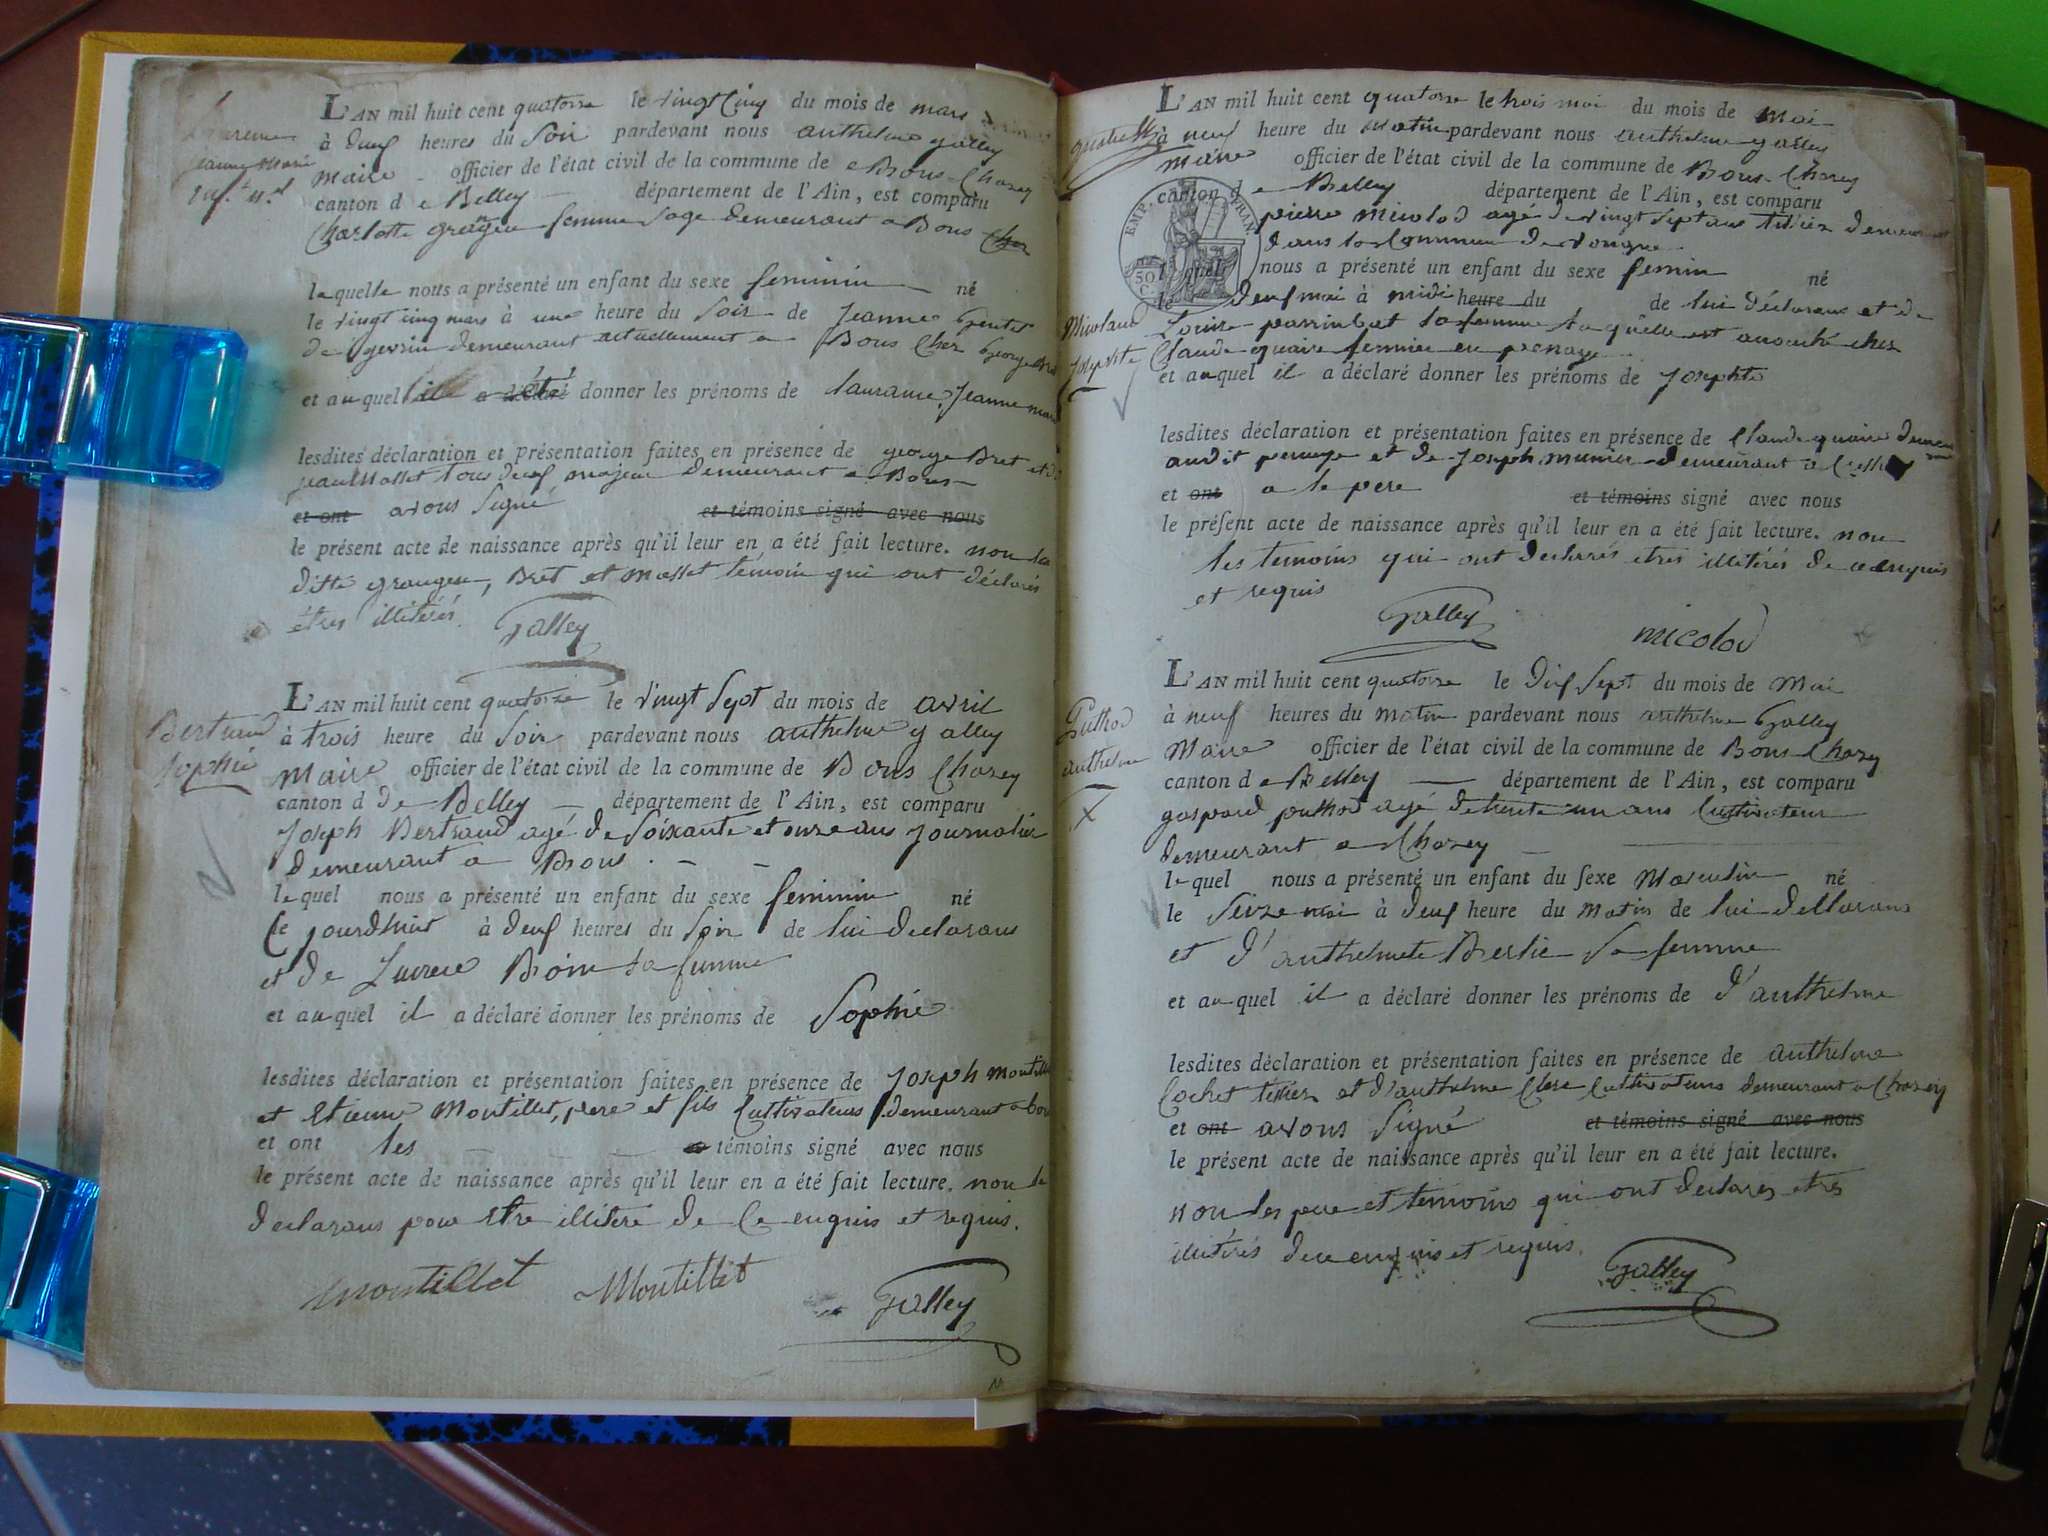 L'AN mil huit cent quatorze le vingt Cinq du mois de mars
à deux heures du Soir pardevant nous anthelme galley
maire officier de l'état civil de la commune de Bons-Chazey
canton d e Belley département de l'Ain, est comparu
Charlotte femme Sage demeurant a Bons
Jeanne Marie
laquelle nous a présenté un enfant du sexe feminin né
le vingt cinq mars à une heure du Soir de Jeanne
demeurant actuellement a Bons Chez George
et auquel donner les prénoms de Jeanne
lesdites déclaration et présentation faites en présence de george Bret et
tous deux majeur demeurant a Bons
et ont avons Signé et témoins signé avec nous
le présent acte de naissance après qu'il leur en a été fait lecture. non la
ditte Bret et témoin qui ont déclarés
êtres illitérés.
Galley
Bertrand
Sophie
L'AN mil huit cent quatorze le vingt Sept du mois de avril
à trois heure du Soir pardevant nous anthelme galley
Maire officier de l'état civil de la commune de Bons Chazey
canton d de Belley département de l'Ain, est comparu
Joseph Bertrand agé de Soixante et onze ans Journalier
demeurant a Bons
lequel nous a présenté un enfant du sexe feminin né
Ce jourdhuit à deux heures du Soir de lui declarans
et de sa femme
et auquel il a déclaré donner les prénoms de Sophie
lesdites déclaration et présentation faites en présence de Joseph montillet
et Etienne Montillet, pere et fils Cultivateurs demeurant a bons
et ont les témoins signé avec nous
le présent acte de naissance après qu'il leur en a été fait lecture. non le
declarans pour Etre illitéré de Ce enquis et requis.
montillet Montillet Galley
L'AN mil huit cent quatorze le trois mai du mois de Mai
à neuf heure du matin pardevant nous anthelme galley
maire officier de l'état civil de la commune de Bons-Chazey
canton d e Belley département de l'Ain, est comparu
EMP. FRAN.
50 C.
pierre micolod agé de vingt Sept ans tissier demeurant
dans la Commune de vongne
lequel nous a présenté un enfant du sexe femin né
le deux mai à midi heure du de lui déclarans et de
Josephte
Louise sa femme laquelle est chez
Claude fermier en
et auquel il a déclaré donner les prénoms de Josephte
lesdites déclaration et présentation faites en présence de Claude
audit et de Joseph munier demeurant a
et ont a le pere et témoins signé avec nous
le présent acte de naissance après qu'il leur en a été fait lecture. non
les temoins qui ont déclarés etres illitérés de ce enquis
et requis
Galley micolod
Puthod
anthelme
L'AN mil huit cent quatorze le Dix Sept du mois de Mai
à neuf heures du matin pardevant nous anthelme Galley
Maire officier de l'état civil de la commune de Bons Chazey
canton d e Belley département de l'Ain, est comparu
gaspard puthod agé de trente un ans Cultivateur
demeurant a Chazey
lequel nous a présenté un enfant du sexe Masculin né
le Seize mai à deux heure du Matin de lui declarans
et d'anthelmete Berlie Sa femme
et auquel il a déclaré donner les prénoms de d'anthelme
lesdites déclaration et présentation faites en présence de anthelme
Cochet tissier et d'anthelme Clerc Cultivateurs demeurant a Chazey
et ont avons Signé et témoins signé avec nous
le présent acte de naissance après qu'il leur en a été fait lecture.
non les pere et temoins qui ont declarés etres
illitérés de ce enquis et requis.
Galley